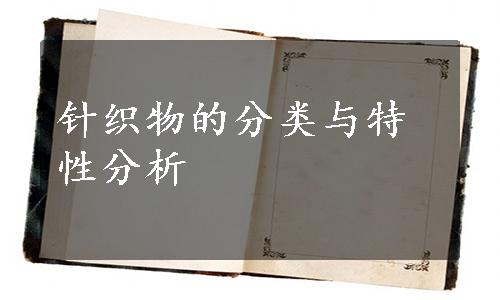 针织物的分类与特
性分析